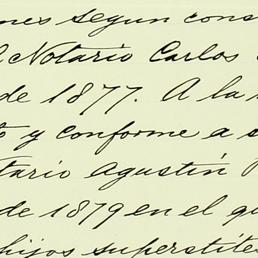 nes segun cons
Notario Carlos
de 1877. A la
y conforme a s
tario Agustín
de 1879 en el qu
hijos superstite